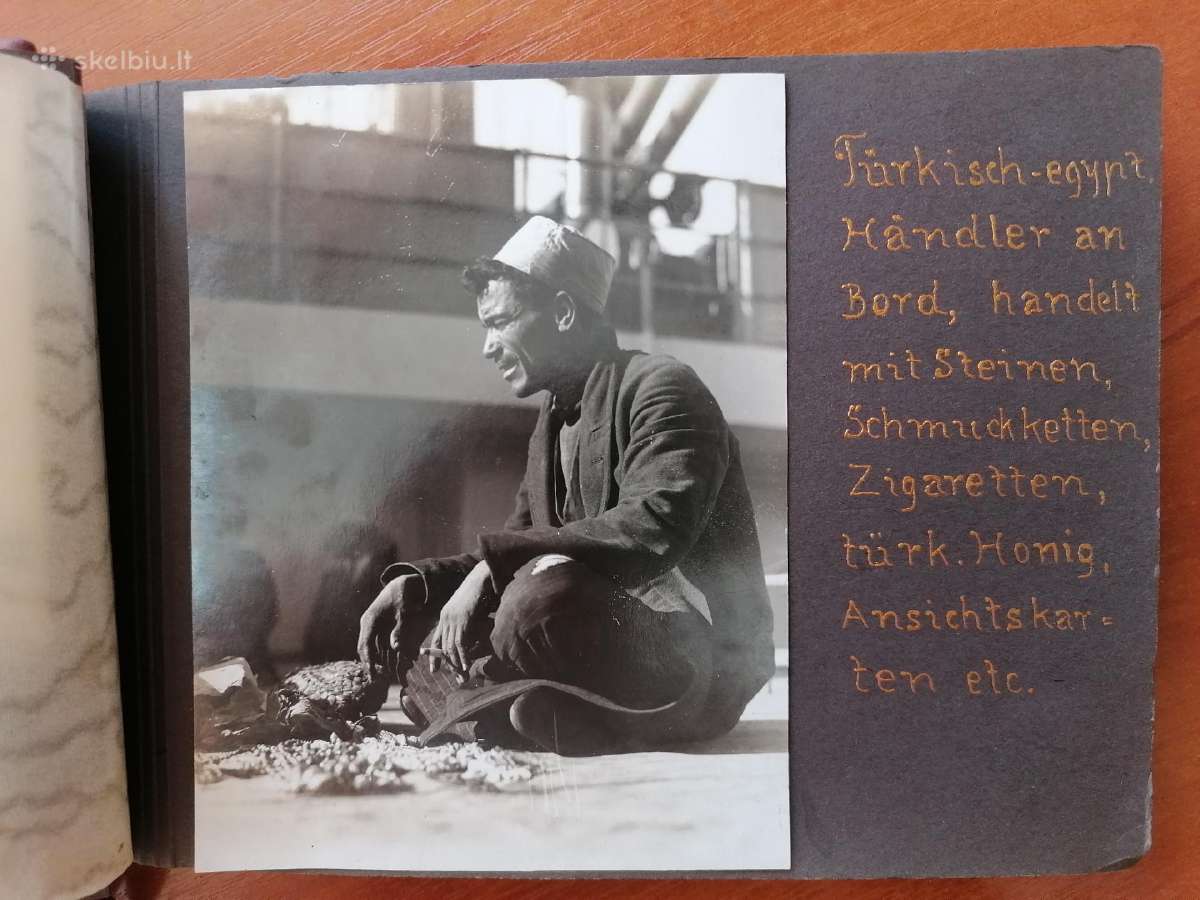 skelbiu.lt
Türkisch-egypt.
Händler an
Bord, handelt
mit Steinen,
Schmuckketten,
Zigaretten,
türk. Honig,
Ansichtskar=
ten etc.